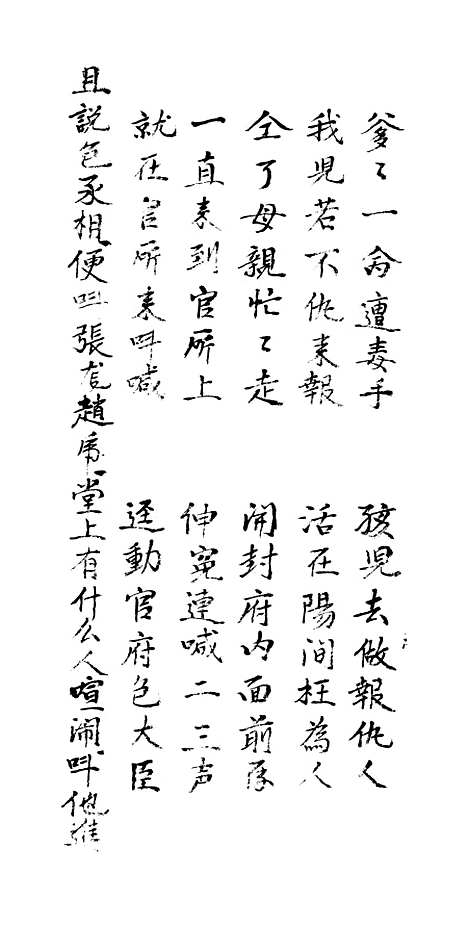 爹〻一命遭毒手 孩兒去做報仇人
我兒若不仇来報 活在陽间枉為人
仝了母親忙〻走 闹封府内面前
一直来到官所上 伸冤連喊二三声
就在官所来叫喊 逕動官府包大臣
且説包丞相便叫張龙趙虎堂上有什么人喧闹叫他進